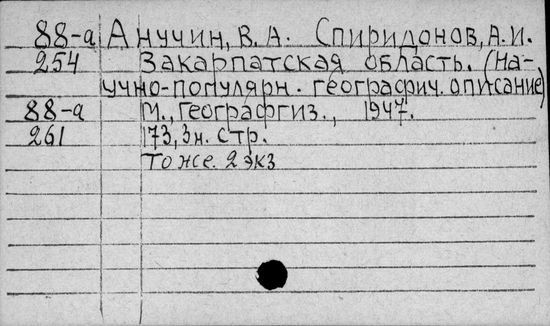 88-а Анучин, В. А. Спиридонов, А. И.
254 Закарпатская область. (На-
учно-популярн. географич. описание)
88-а М., Географгиз., 1947.
261 173, 3н. стр.
То же. 2 экз